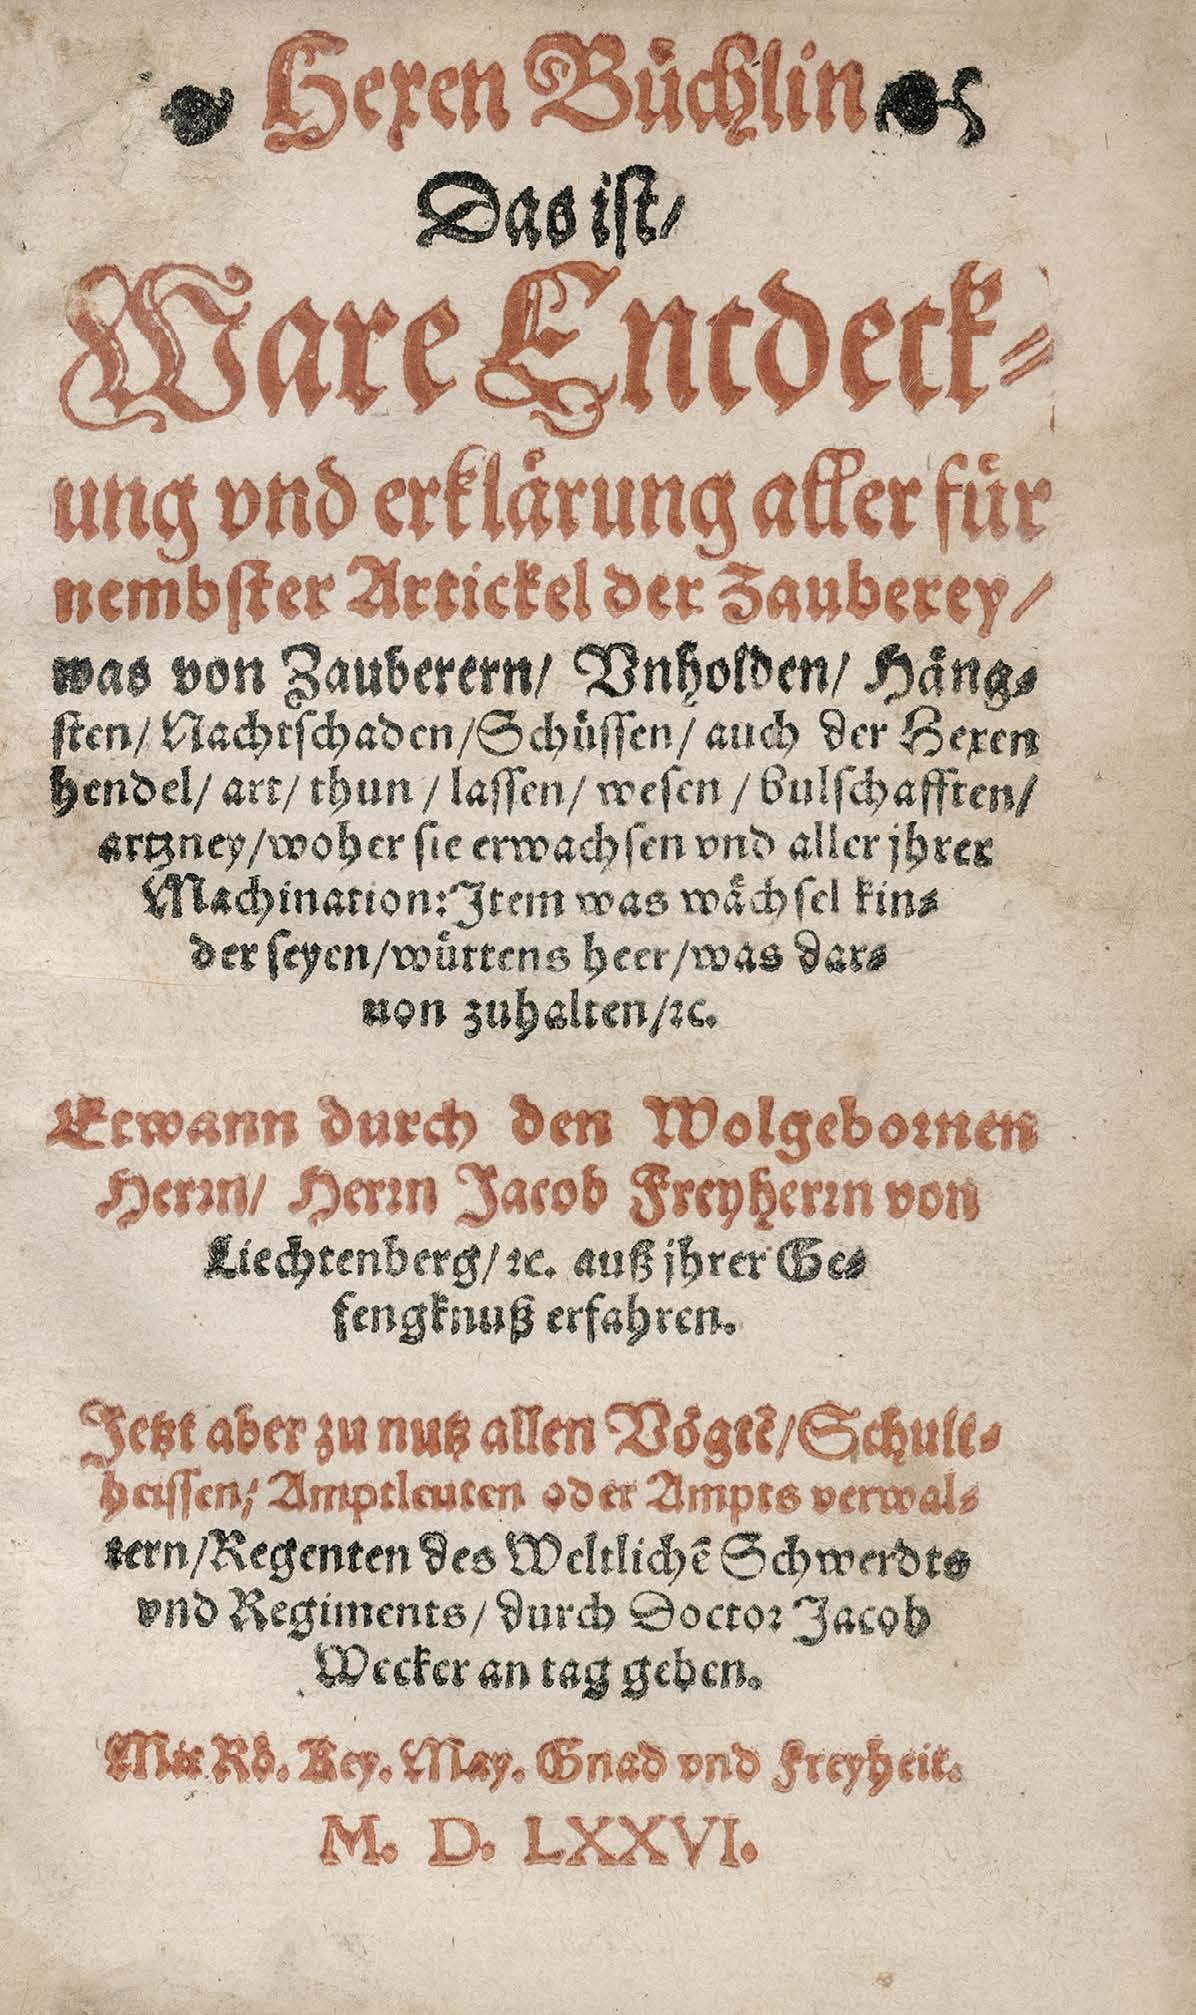 Hexen Bůchlin
Das ist/
Ware Entdeck-
ung vnd erklårung aller fůr
nembster Artickel der Zauberey/
was von Zauberern/ Vnholden/ Hång-
sten/ Nachtschaden/ Schüssen/ auch der Hexen
hendel/ art/ thun / lassen/ wesen / bulschafften/
artzney/ woher sie erwachsen vnd aller jhrer
Machination: Item was wåchsel kin-
der seyen/ wůttens heer/ was dar-
uon zuhalten/ ꝛc.
Etwann durch den Wolgebornen
Herrn/ Herrn Jacob Freyherrn von
Liechtenberg/ ꝛc. auß jhrer Ge-
fengknuß erfahren.
Jetzt aber zu nutz allen Vögtē/ Schult-
heissen, Amptleuten oder Ampts verwal-
tern/ Regenten des Weltlichē Schwerdts
vnd Regiments/ durch Doctor Jacob
Wecker an tag geben.
Mit Rö. Key. May. Gnad vnd Freyheit.
M. D. LXXVI.